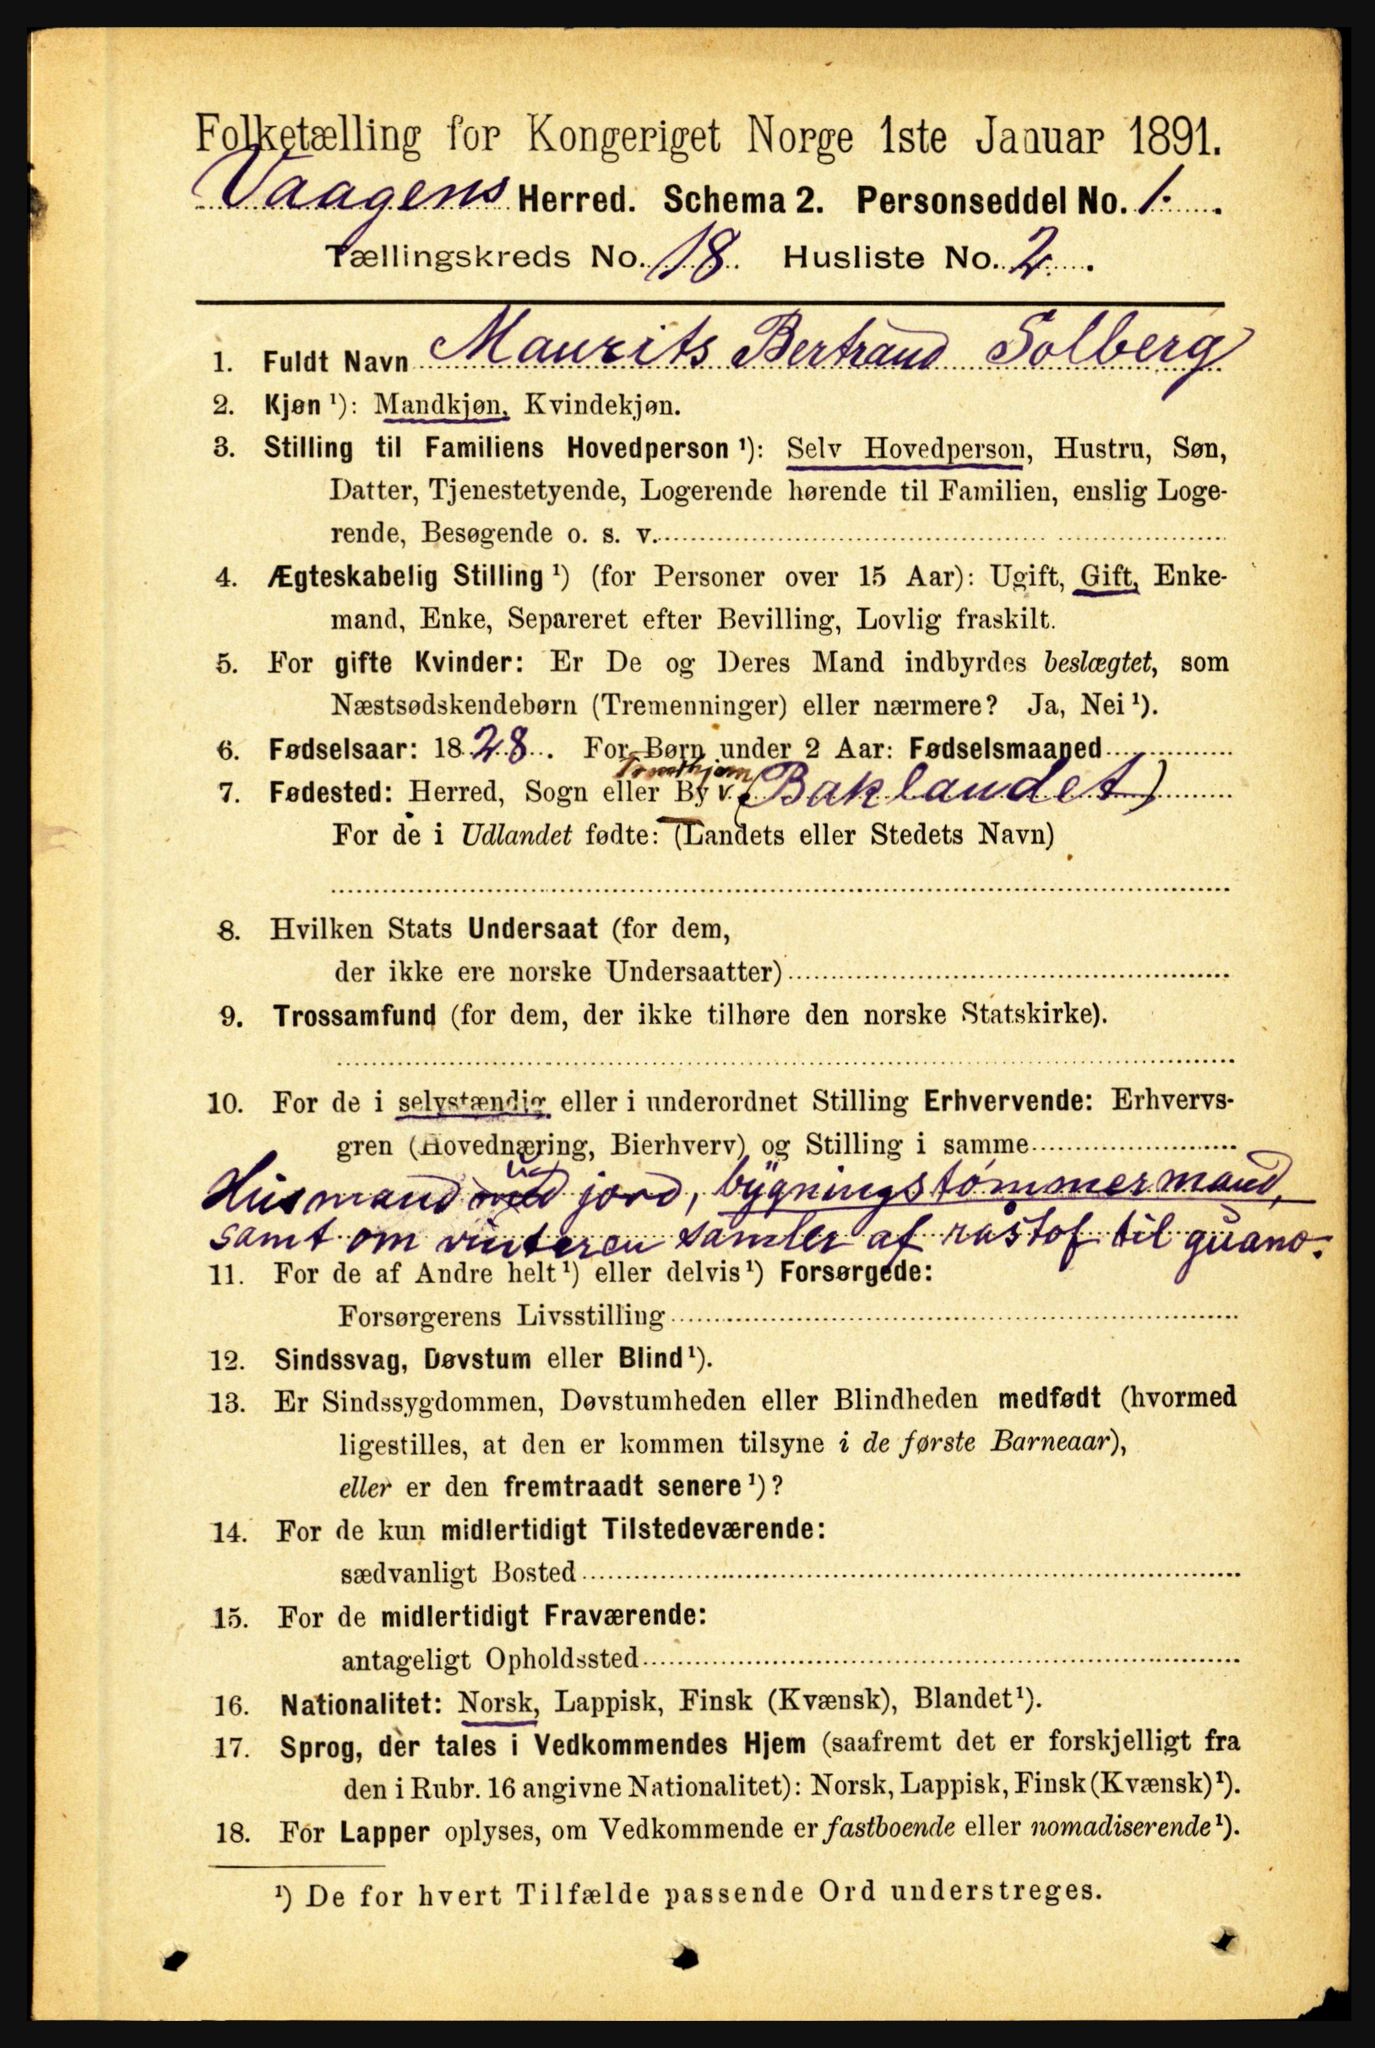 Folketælling for Kongeriget Norge 1ste Januar 1891.
Vaagens Herred. Schema 2. Personseddel No. 1.
Tællingskreds No. 18. Husliste No. 2.
1. Fuldt Navn Maurits Bertrand Solberg
2. Kjøn ¹): Mandkjøn, Kvindekjøn.
3. Stilling til Familiens Hovedperson ¹): Selv Hovedperson, Hustru, Søn,
Datter, Tjenestetyende, Logerende hørende til Familien, enslig Loge-
rende, Besøgende o. s. v.
4. Ægteskabelig Stilling ¹) (for Personer over 15 Aar): Ugift, Gift, Enke-
mand, Enke, Separeret efter Bevilling, Lovlig fraskilt.
5. For gifte Kvinder: Er De og Deres Mand indbyrdes beslægtet, som
Næstsødskendebørn (Tremenninger) eller nærmere? Ja, Nei ¹).
6. Fødselsaar: 1828. For Børn under 2 Aar: Fødselsmaaned
Trondhjem
7. Fødested: Herred, Sogn eller By v. (Baklandet)
For de i Udlandet fødte: (Landets eller Stedets Navn)
8. Hvilken Stats Undersaat (for dem,
der ikke ere norske Undersaatter)
9. Trossamfund (for dem, der ikke tilhøre den norske Statskirke).
10. For de i selvstændig eller i underordnet Stilling Erhvervende: Erhvervs-
gren (Hovednæring, Bierhverv) og Stilling i samme
Husmand jord, bygningstømmermand,
samt om vinteren samler af råstof til guano.
11. For de af Andre helt ¹) eller delvis ¹) Forsørgede:
Forsørgerens Livsstilling
12. Sindssvag, Døvstum eller Blind ¹).
13. Er Sindssygdommen, Døvstumheden eller Blindheden medfødt (hvormed
ligestilles, at den er kommen tilsyne i de første Barneaar),
eller er den fremtraadt senere ¹)?
14. For de kun midlertidigt Tilstedeværende:
sædvanligt Bosted
15. For de midlertidigt Fraværende:
antageligt Opholdssted
16. Nationalitet: Norsk, Lappisk, Finsk (Kvænsk), Blandet ¹).
17. Sprog, der tales i Vedkommendes Hjem (saafremt det er forskjelligt fra
den i Rubr. 16 angivne Nationalitet): Norsk, Lappisk, Finsk (Kvænsk) ¹).
18. For Lapper oplyses, om Vedkommende er fastboende eller nomadiserende ¹).
¹) De for hvert Tilfælde passende Ord understreges.